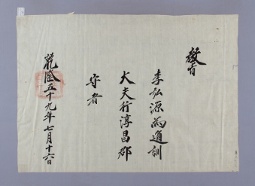 敎旨
李弘源爲通訓
大夫行淳昌郡
守者
乾隆五十九年七月十六日